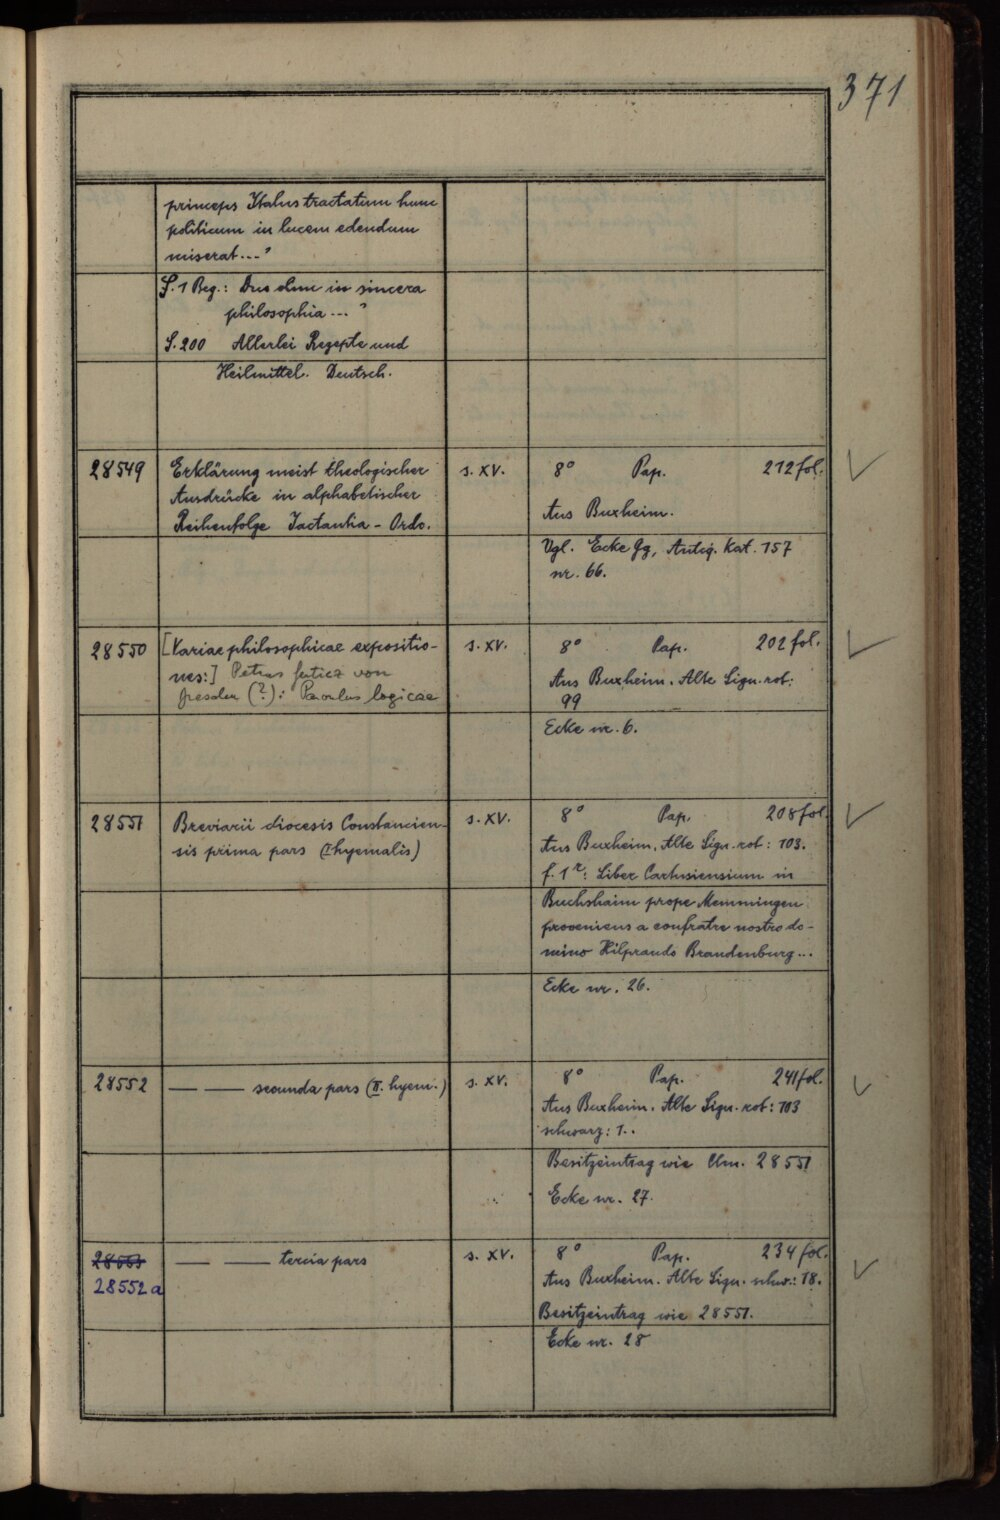 371
princeps Italus tractatum hunc
politicum in lucem edendum
miserat..."
S. 1 Beg.: Duo in sincera
philosophia ..."
S. 200 Allerlei Rezepte und
Heilmittel. Deutsch.
28549 Erklärung meist theologischer s. XV. 8° Pap. 212 fol.
Ausdrücke in alphabetischer
Reihenfolge Iactantia - Ordo. Aus Buxheim.
Vgl. Ecke Gg, Antiq. Kat. 157
nr. 66.
28550 [Variae philosophicae expositio- s. XV. 8° Pap. 202 fol.
nes:] Petrus von Aus Buxheim. Alte Sign. rot:
Dresden (?): Parvulus logicae 99
Ecke nr. 6.
28551 Breviarii diocesis Constancien- s. XV. 8° Pap. 208 fol.
sis prima pars (I hyemalis) Aus Buxheim. Alte Sign. rot: 103.
f. 1r: Liber Cartusiensium in
Buchshaim prope Memmingen
proveniens a confratre nostro do-
mino Hilprando Brandenburg...
Ecke nr. 26.
28552 — — secunda pars (II. hyem.) s. XV. 8° Pap. 241 fol.
Aus Buxheim. Alte Sign. rot: 103
schwarz: 1..
Besitzeintrag wie Clm. 28551
Ecke nr. 27.
28553 — — tercia pars s. XV. 8° Pap. 234 fol.
28552a Aus Buxheim. Alte Sign. schw.: 18.
Besitzeintrag wie 28551.
Ecke nr. 28